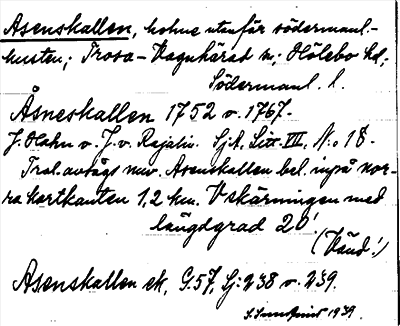 Asenskallen, holme utanför södermanl.-
kusten; Trosa-Vagnhärad sn; Hölebo hd,
Södermanl. l.
Åsneskallen 1752 o. 1767.
J. Hahn o. J. v. Rajalin. SjA. Litt. VIII, No 18.
Trol. avsågs nuv. Asenskallen bel. inpå nor-
ra kartkanten 1,2 km. V skärningen med
längdgrad 20'.
(Vänd!)
Asenskallen ek, G.57, Sj: 238 o. 239.
1939.